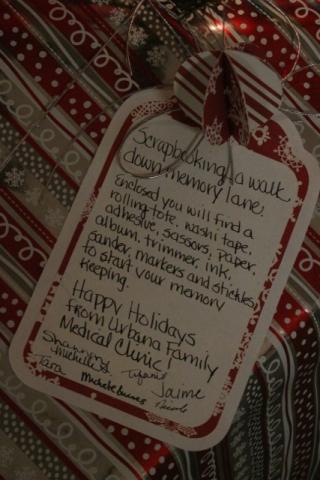 Scrapbooking! a walk
down memory lane!
Enclosed you will find a
rolling tote, washi tape,
adhesive, scissors, paper,
album, trimmer, ink,
sander, markers and stickles
to start your memory
keeping.
Happy Holidays
from Urbana Family
Medical Clinic!
Shannon
Tara Jaime
Nicole